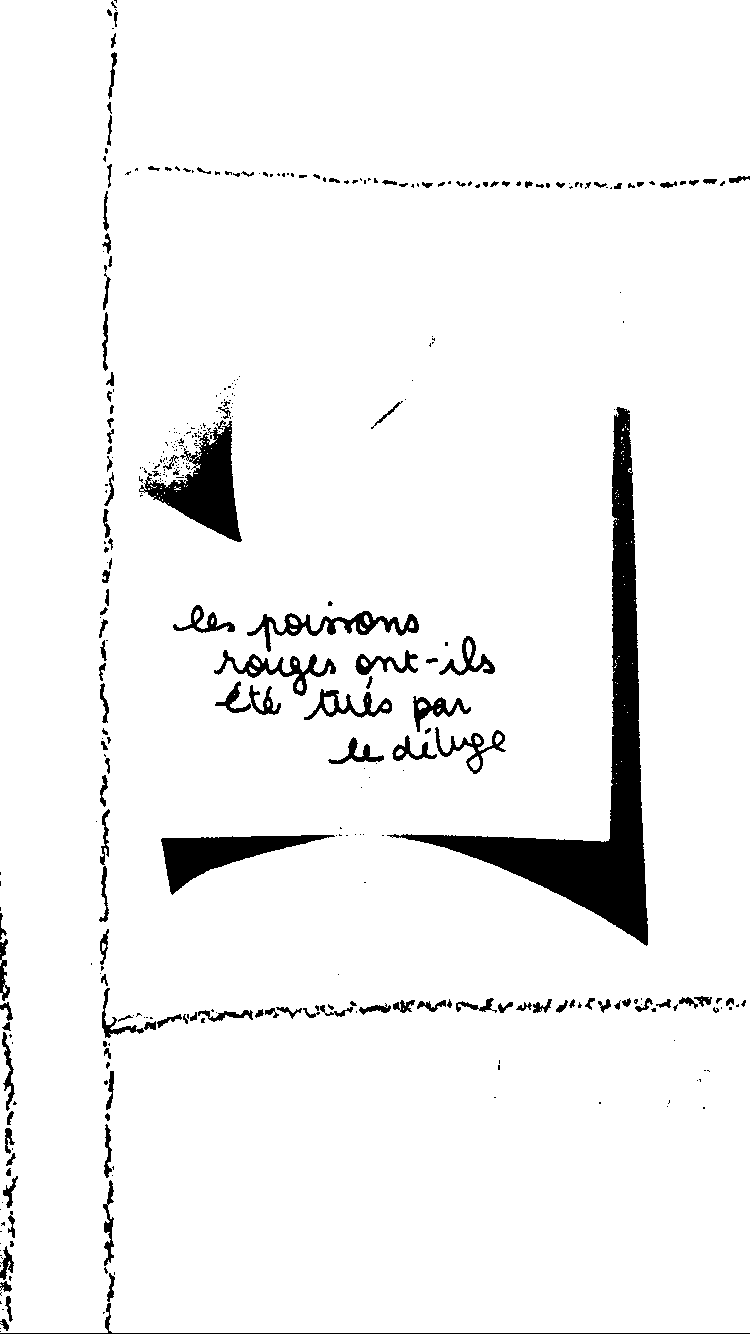 les poissons
rouges ont-ils
été tués par
le déluge